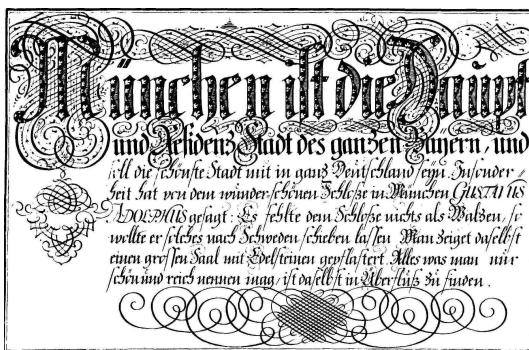 München ist die Haupt
und Residenz Stadt des ganzen Bayern, und
soll die schönste Stadt mit in ganz Deutschland seyn. Insonder=
heit hat von dem wunderschönen Schloße in München GUSTAVUS
ADOLPHUS gesagt: Es fehlte dem Schloße nichts als Walzen, so
wollte er solches nach Schweden schieben lassen. Man zeiget daselbst
einen grossen Saal mit Edelsteinen gepflastert. Alles was man nur
schön und reich nennen mag, ist daselbst in Überfluß zu finden.